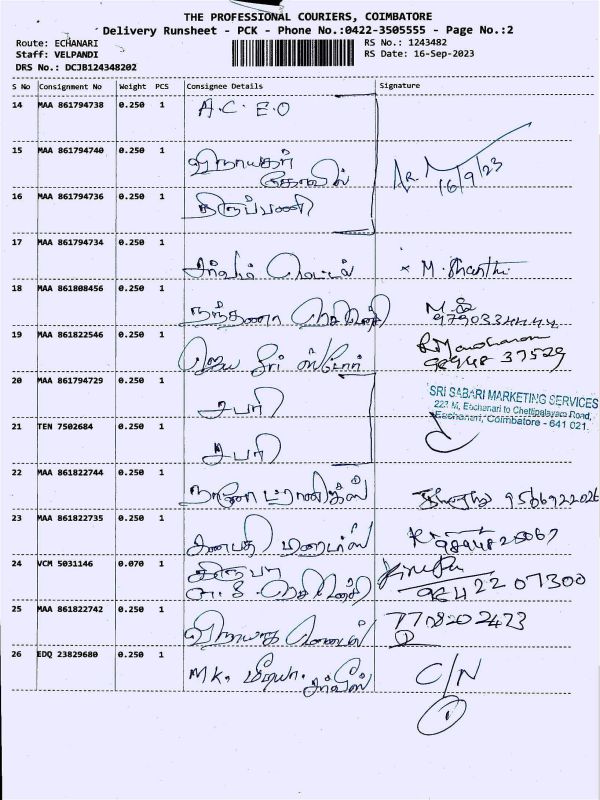 THE PROFESSIONAL COURIERS, COIMBATORE
Delivery Runsheet - PCK - Phone No.:0422-3505555 - Page No.:2
Route: ECHANARI RS No.: 1243482
Staff: VELPANDI RS Date: 16-Sep-2023
DRS No.: DCJB124348202
S No Consignment No Weight PCS Consignee Details Signature
14 MAA 861794738 0.250 1 A.C. E.O
15 MAA 861794740 0.250 1 விநாயகர்
கோவில் 16/9/23
16 MAA 861794736 0.250 1 திருப்பணி
17 MAA 861794734 0.250 1
சர்வம் மெட்டல் x M. Shanthi
18 MAA 861808456 0.250 1
9790334444
19 MAA 861822546 0.250 1
ஜெய ஸ்ரீ ஸ்டோர் 98948 37529
20 MAA 861794729 0.250 1 சபரி
SRI SABARI MARKETING SERVICES
223 M, Eachanari to Chettipalayam Road,
Eachanari, Coimbatore - 641 021.
21 TEN 7502684 0.250 1 சபரி
22 MAA 861822744 0.250 1
9566922026
23 MAA 861822735 0.250 1
கணபதி 9894825067
24 VCM 5031146 0.070 1 கிருபா
984 22 07300
25 MAA 861822742 0.250 1 7708202423
விநாயகா
26 EDQ 23829680 0.250 1 MK. மீடியா. சர்வீஸ் C/N
1